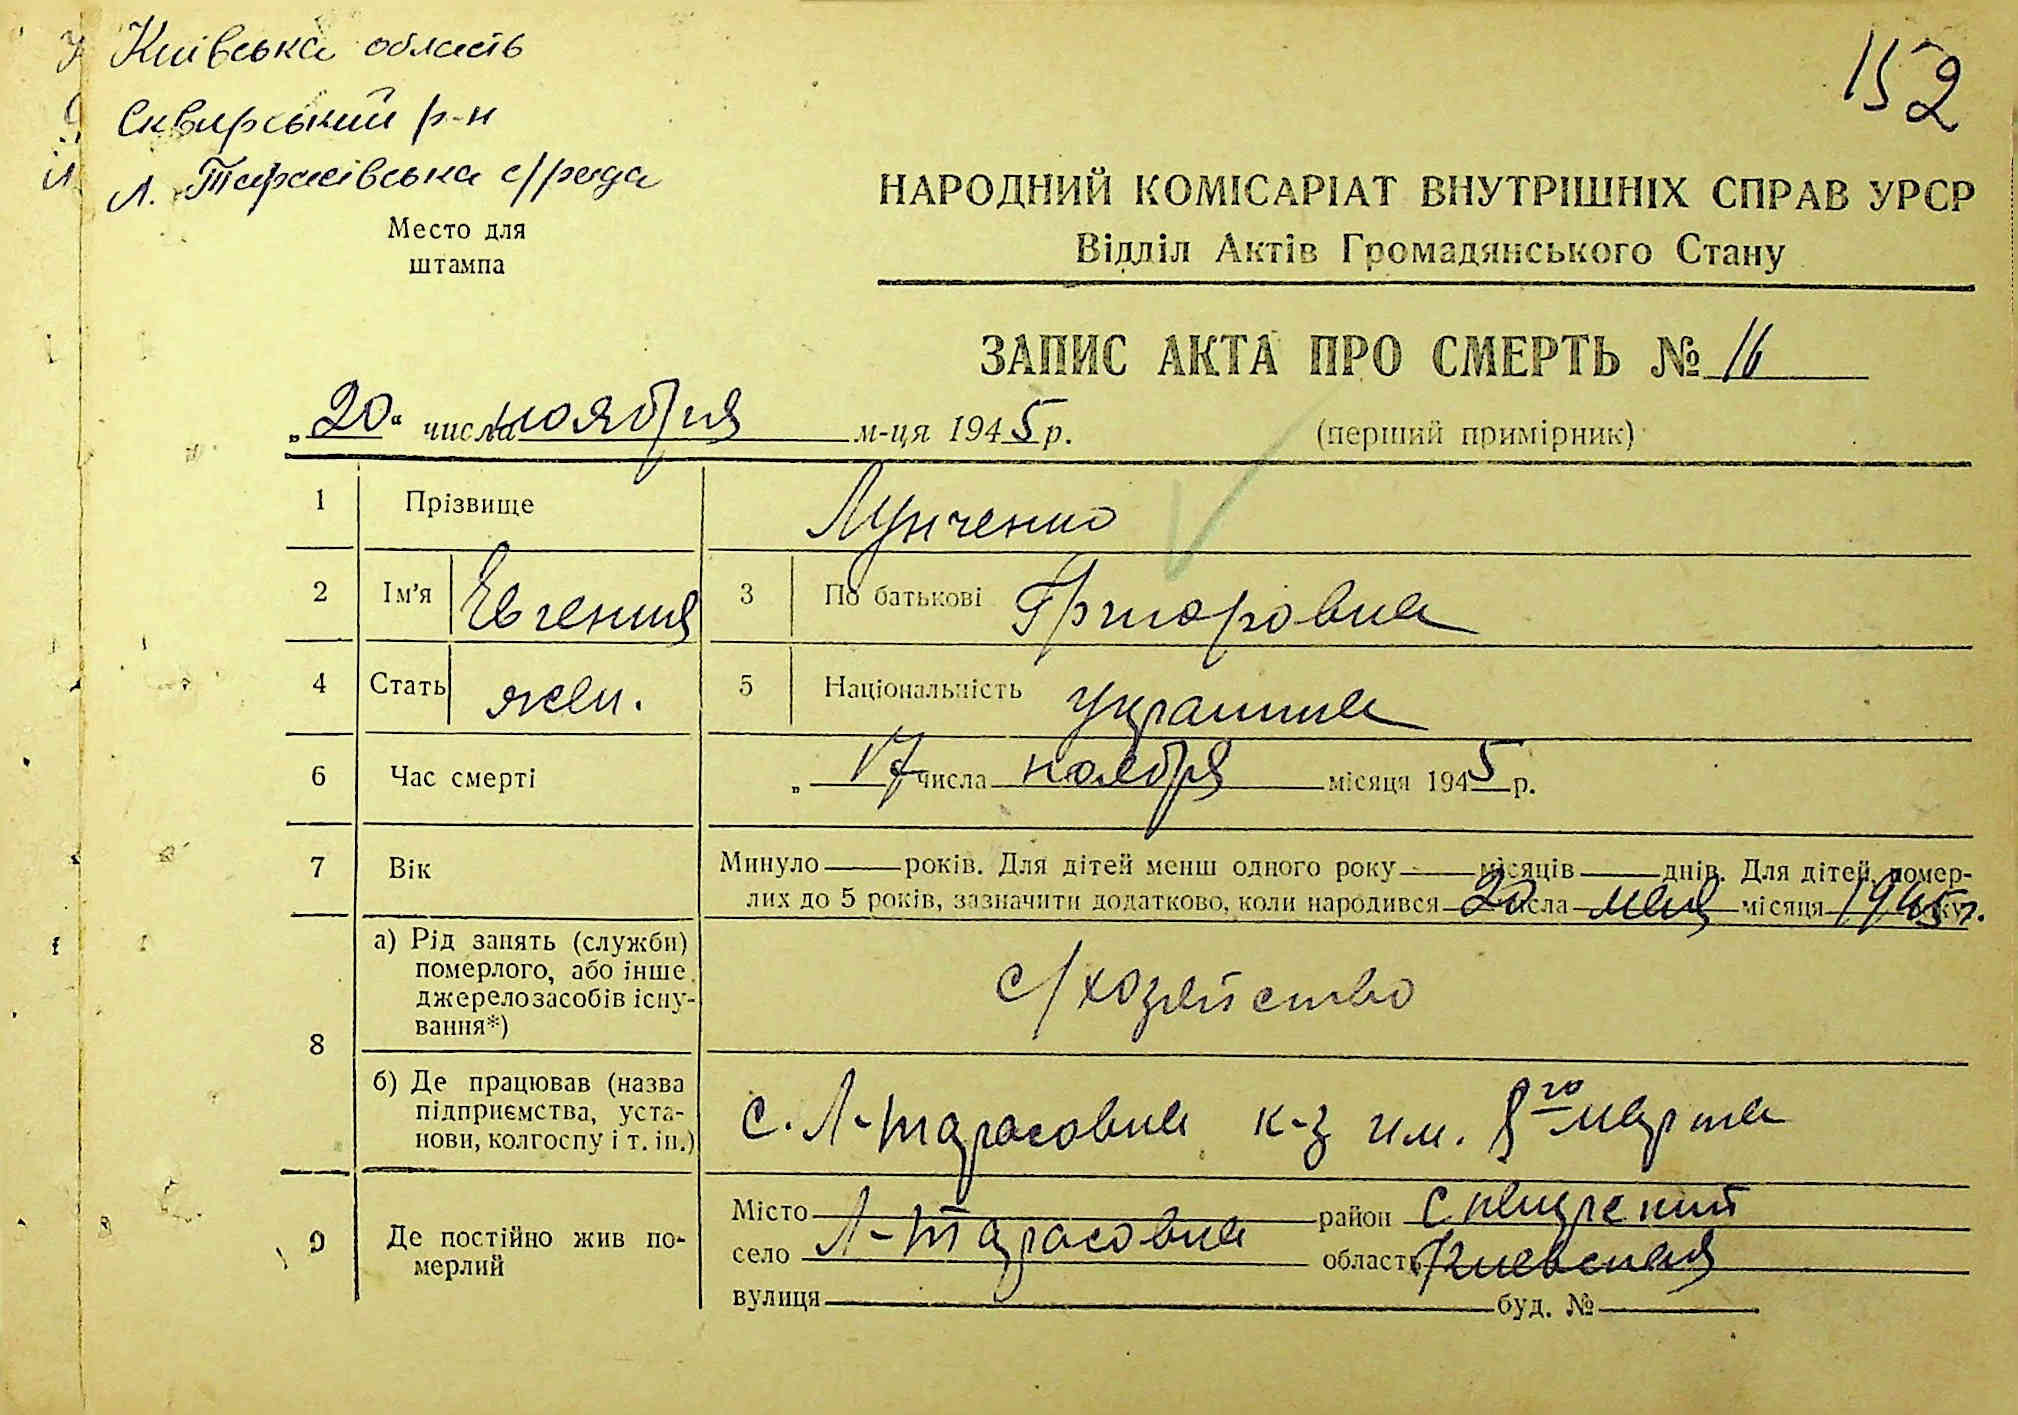 Київська область
Сквирський р-н
Л. Тарасівська с/рада
Место для
штампа
152
НАРОДНИЙ КОМІСАРІАТ ВНУТРІШНІХ СПРАВ УРСР
Відділ Актів Громадянського Стану
ЗАПИС АКТА ПРО СМЕРТЬ № 16
„20“ числа ноября м-ця 1945 р.
(перший примірник)
1 Прізвище
2 Ім'я Евгения 3 По батькові Григоровна
4 Стать жен. 5 Національність украинка
6 Час смерті „ 17 числа ноября місяця 1945 р.
7 Вік Минуло — років. Для дітей менш одного року — місяців — днів. Для дітей, помер-
лих до 5 років, зазначити додатково, коли народився 20 числа мая місяця 1945 г. року
8 а) Рід занять (служби)
померлого, або інше
джерело засобів існу-
вання*)
с/хозяйство
б) Де працював (назва
підприємства, уста-
нови, колгоспу і т. ін.)
с. Л-Тарасовка к-з им. 8го марта
9 Де постійно жив по-
мерлий
Місто — район Сквирский
село Л-Тарасовка область Киевская
вулиця — буд. № —